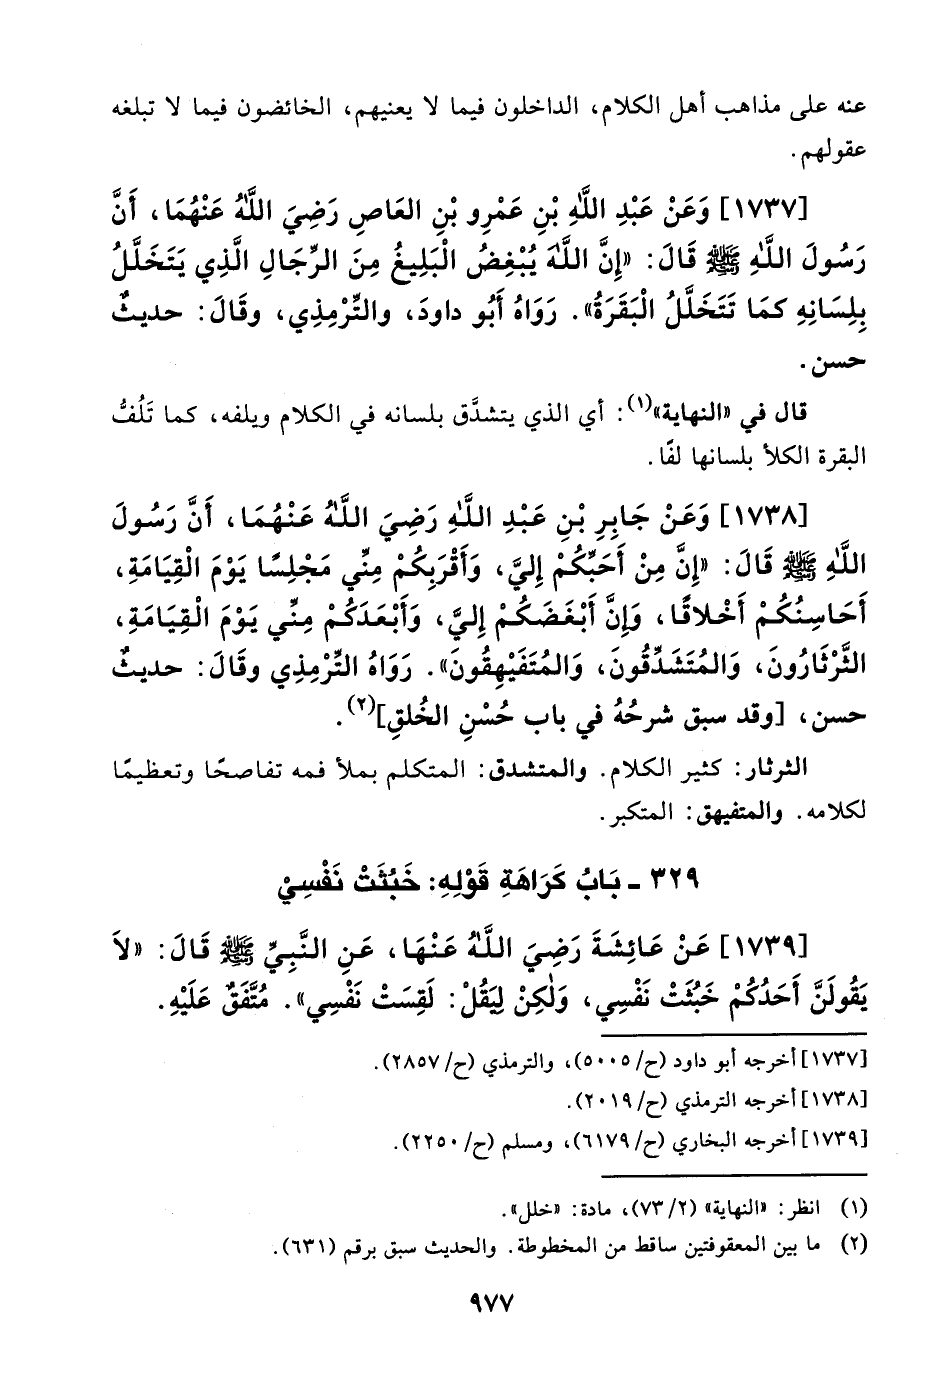 عنه على مذاهب أهل الكلام، الداخلون فيما لا يعنيهم، الخائضون فيما لا تبلغه
عقولهم.
[١٧٣٧] وَعَنْ عَبْدِ اللَّهِ بْنِ عَمْرِو بْنِ العَاصِ رَضِيَ اللَّهُ عَنْهُمَا، أَنَّ
رَسُولَ اللَّهِ ﷺ قَالَ: «إِنَّ اللَّهَ يُبْغِضُ الْبَلِيغُ مِنَ الرِّجَالِ الَّذِي يَتَخَلَّلُ
بِلِسَانِهِ كمَا تَتَخَلَّلُ الْبَقَرَةُ». رَوَاهُ أَبُو داودَ، والتِّرْمِذِي، وقَالَ: حديثٌ
حسن.
قال في «النهاية»(١): أي الذي يتشدَّق بلسانه في الكلام ويلفه، كما تَلُفُّ
البقرة الكلأ بلسانها لفًا.
[١٧٣٨] وَعَنْ جَابِرِ بْنِ عَبْدِ اللَّهِ رَضِيَ اللَّهُ عَنْهُمَا، أَنَّ رَسُولَ
اللَّهِ ﷺ قَالَ: «إِنَّ مِنْ أَحَبِّكُمْ إِليَّ، وَأَقْرَبِكُمْ مِنِّي مَجْلِسًا يَوْمَ الْقِيَامَةِ،
أَحَاسِنُكُمْ أَخْلاقًا، وَإِنَّ أَبْغَضَكُمْ إِليَّ، وَأَبْعَدَكُمْ مِنِّي يَوْمَ الْقِيَامَةِ،
الثَّرْثَارُونَ، وَالمُتَشَدِّقُونَ، وَالمُتَفَيْهِقُونَ». رَوَاهُ التِّرْمِذِي وقَالَ: حديثٌ
حسن، [وقد سبق شرحُهُ في باب حُسْنِ الخُلقِ](٢).
الثرثار: كثير الكلام. والمتشدق: المتكلم بملأ فمه تفاصحًا وتعظيمًا
لكلامه. والمتفيهق: المتكبر.
٣٢٩ - بَابُ كَرَاهَةِ قَوْلِهِ: خَبُثَتْ نَفْسِيْ
[١٧٣٩] عَنْ عَائِشَةَ رَضِيَ اللَّهُ عَنْهَا، عَنِ النَّبِيِّ ﷺ قَالَ: «لاَ
يَقُولَنَّ أَحَدُكُمْ خَبُثَتْ نَفْسِي، وَلٰكِنْ لِيَقُلْ: لَقِسَتْ نَفْسِي». مُتَّفَقٌ عَلَيْهِ.
[١٧٣٧] أخرجه أبو داود (ح/ ٥٠٠٥)، والترمذي (ح/ ٢٨٥٧).
[١٧٣٨] أخرجه الترمذي (ح/ ٢٠١٩).
[١٧٣٩] أخرجه البخاري (ح/ ٦١٧٩)، ومسلم (ح/ ٢٢٥٠).
(١) انظر: «النهاية» (٢/ ٧٣)، مادة: «خلل».
(٢) ما بين المعقوفتين ساقط من المخطوطة. والحديث سبق برقم (٦٣١).
٩٧٧